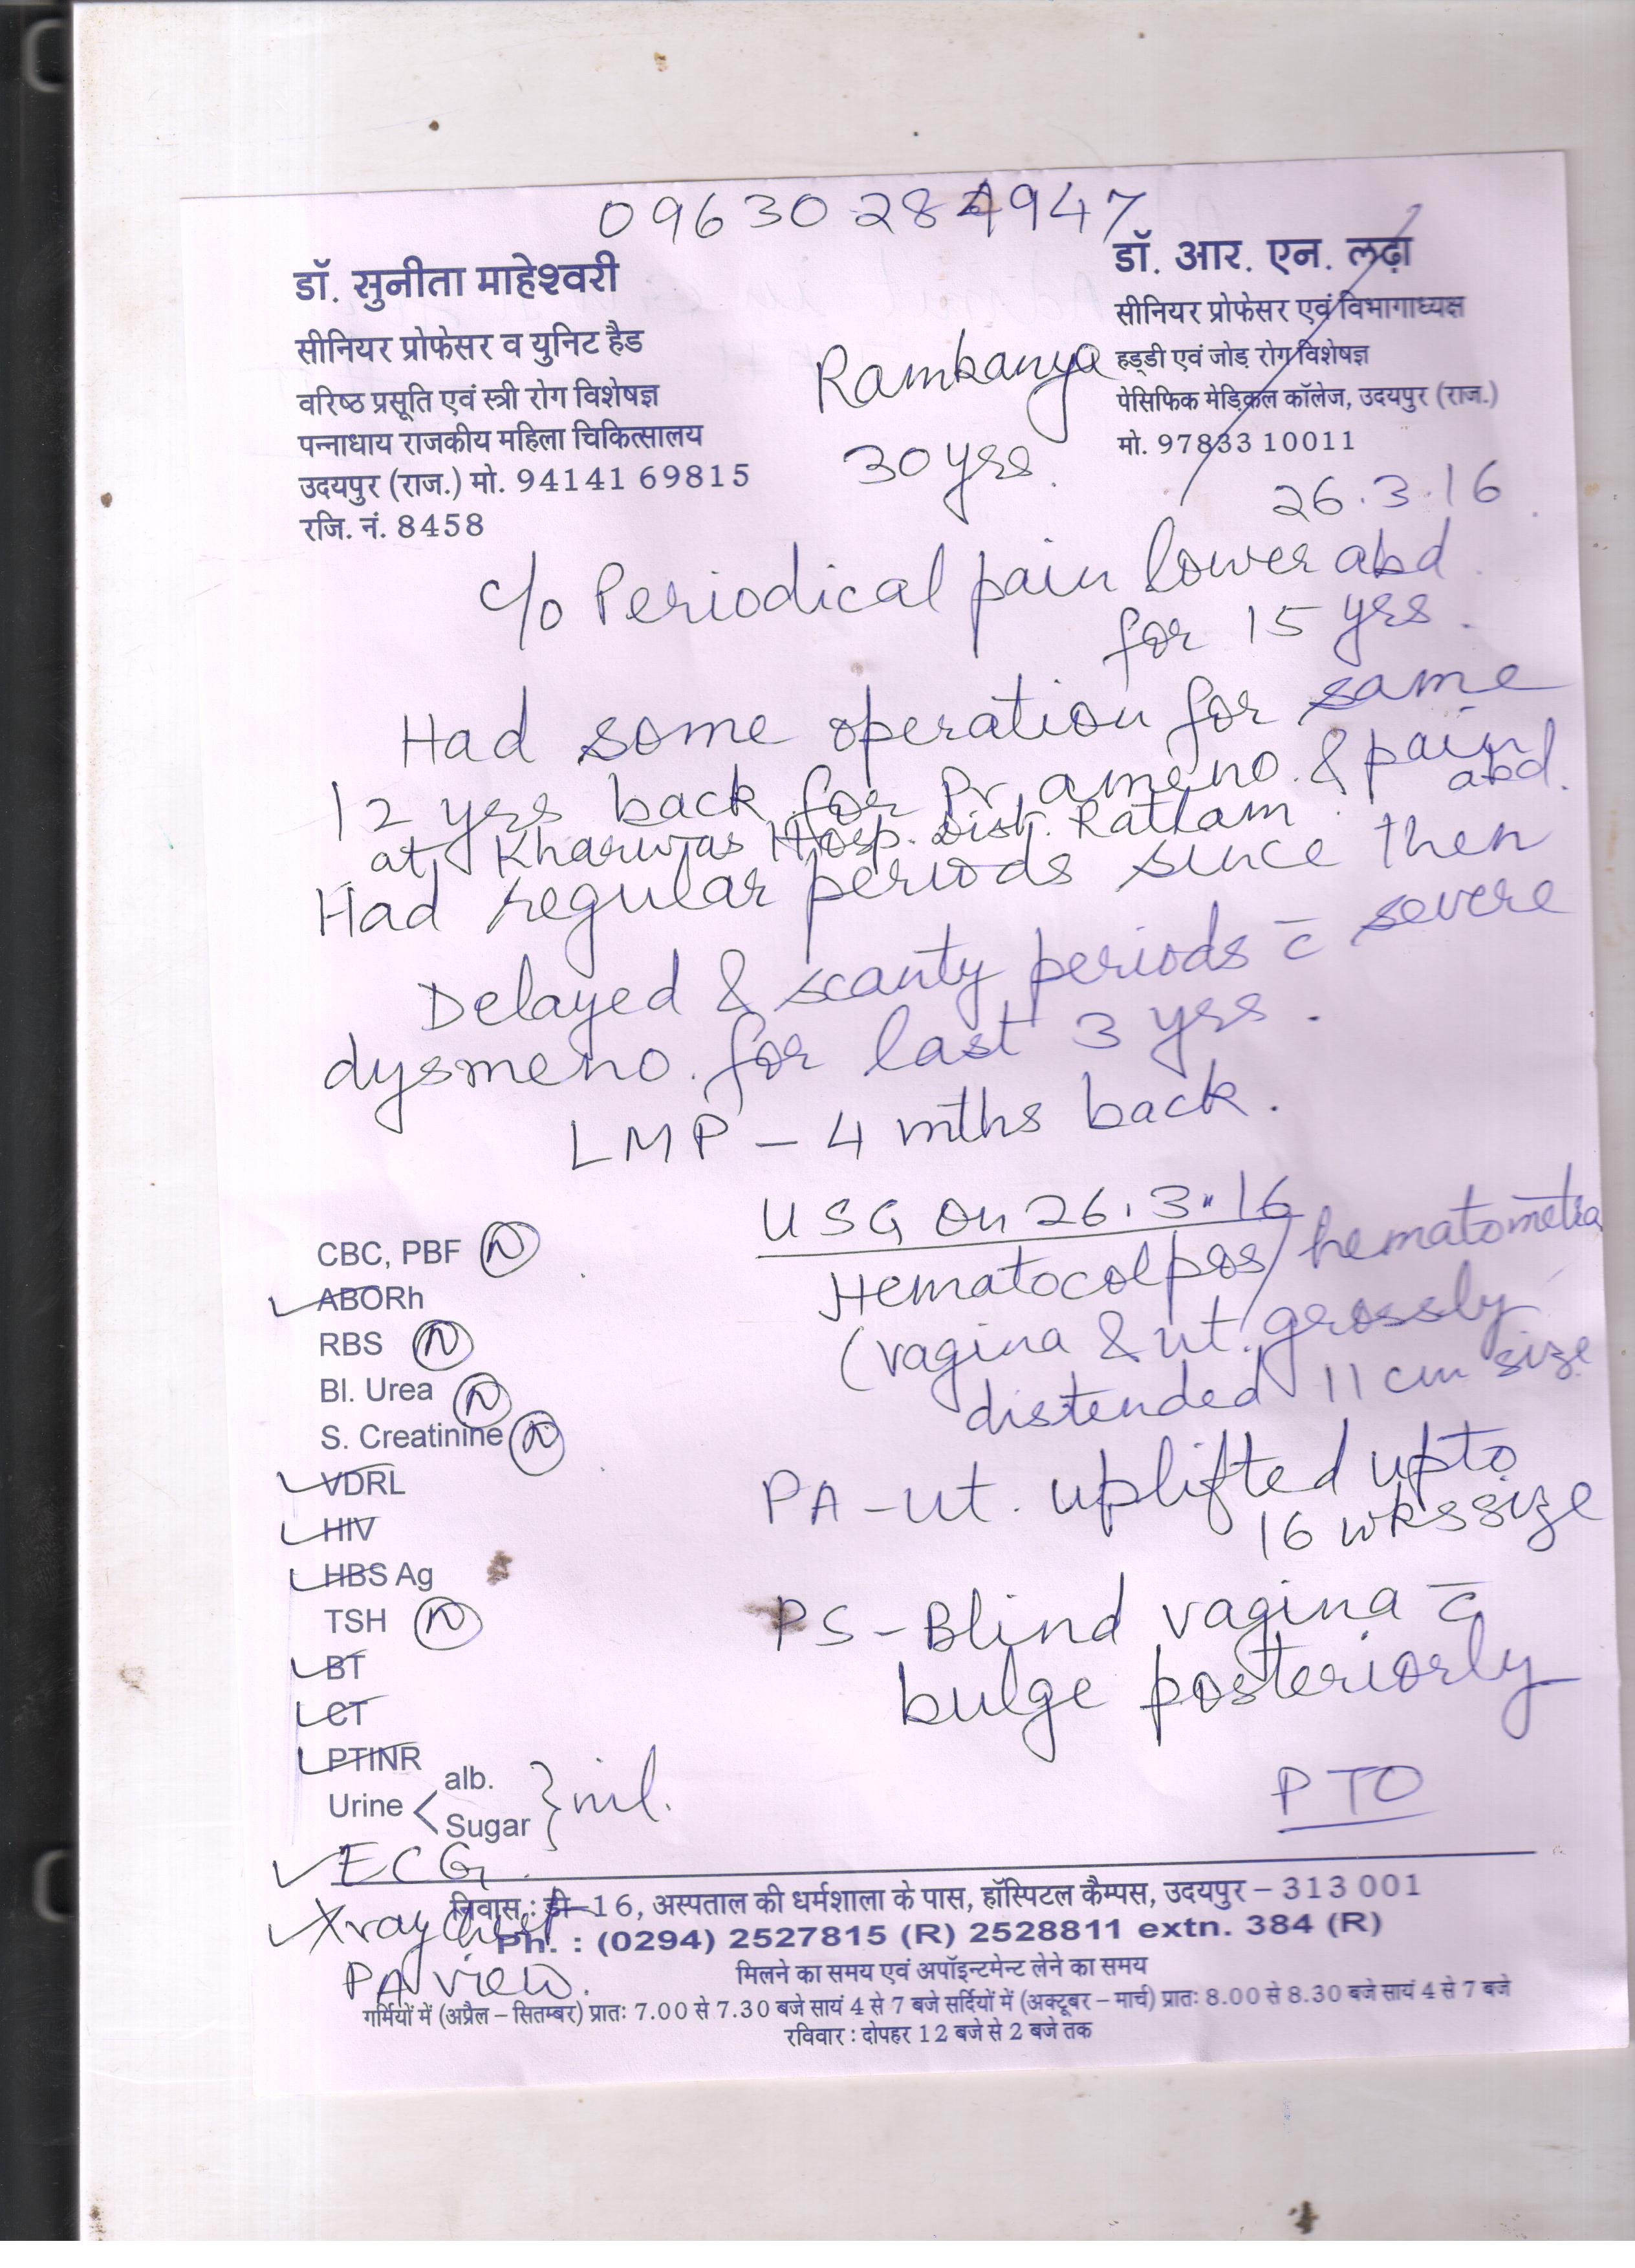 09630284947
डॉ. सुनीता माहेश्वरी
सीनियर प्रोफेसर व युनिट हैड
वरिष्ठ प्रसूति एवं स्त्री रोग विशेषज्ञ
पन्नाधाय राजकीय महिला चिकित्सालय
उदयपुर (राज.) मो. 94141 69815
रजि. नं. 8458
डॉ. आर. एन. लढ़ा
सीनियर प्रोफेसर एवं विभागाध्यक्ष
हड्डी एवं जोड़ रोग विशेषज्ञ
पेसिफिक मेडिकल कॉलेज, उदयपुर (राज.)
मो. 97833 10011
Ramkanya
30 yrs.
26.3.16
c/o Periodical pain lower abd.
for 15 yrs.
Had some operation for same
12 yrs back for Pr. ameno. & pain abd.
at Hosp. Dist. Ratlam
Had regular periods since then
Delayed & scanty periods c̄ severe
dysmeno. for last 3 yrs.
LMP – 4 mths back.
USG on 26.3.16
Hematocolpos/hematometra
(vagina & ut. grossly
distended 11 cm size
PA – ut. uplifted upto
16 wks size
PS – Blind vagina c̄
bulge posteriorly
PTO
CBC, PBF N
ABORh
RBS N
Bl. Urea N
S. Creatinine N
VDRL
HIV
HBS Ag
TSH N
BT
CT
PTINR
Urine < alb. Sugar } nil.
ECG.
Xray chest
PA view.
निवास : डी-16, अस्पताल की धर्मशाला के पास, हॉस्पिटल कैम्पस, उदयपुर – 313 001
Ph. : (0294) 2527815 (R) 2528811 extn. 384 (R)
मिलने का समय एवं अपॉइन्टमेन्ट लेने का समय
गर्मियों में (अप्रैल – सितम्बर) प्रातः 7.00 से 7.30 बजे सायं 4 से 7 बजे सर्दियों में (अक्टूबर – मार्च) प्रातः 8.00 से 8.30 बजे सायं 4 से 7 बजे
रविवार : दोपहर 12 बजे से 2 बजे तक